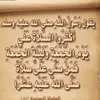 يقول رسول الله صلى الله عليه وسلم
أكثروا الصلاة علي
يوم الجمعة وليلة الجمعة
فمن صلى علي صلاة
صلى الله عليه عشرا